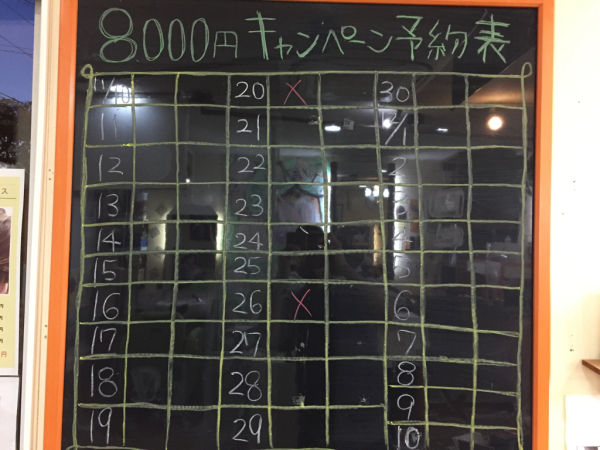 8000円 キャンペーン予約表
11/10 20 X 30
11 21 12/1
12 22 2
13 23 3
14 24 4
15 25 5
16 26 X 6
17 27 7
18 28 8
19 29 9
10
ス
円